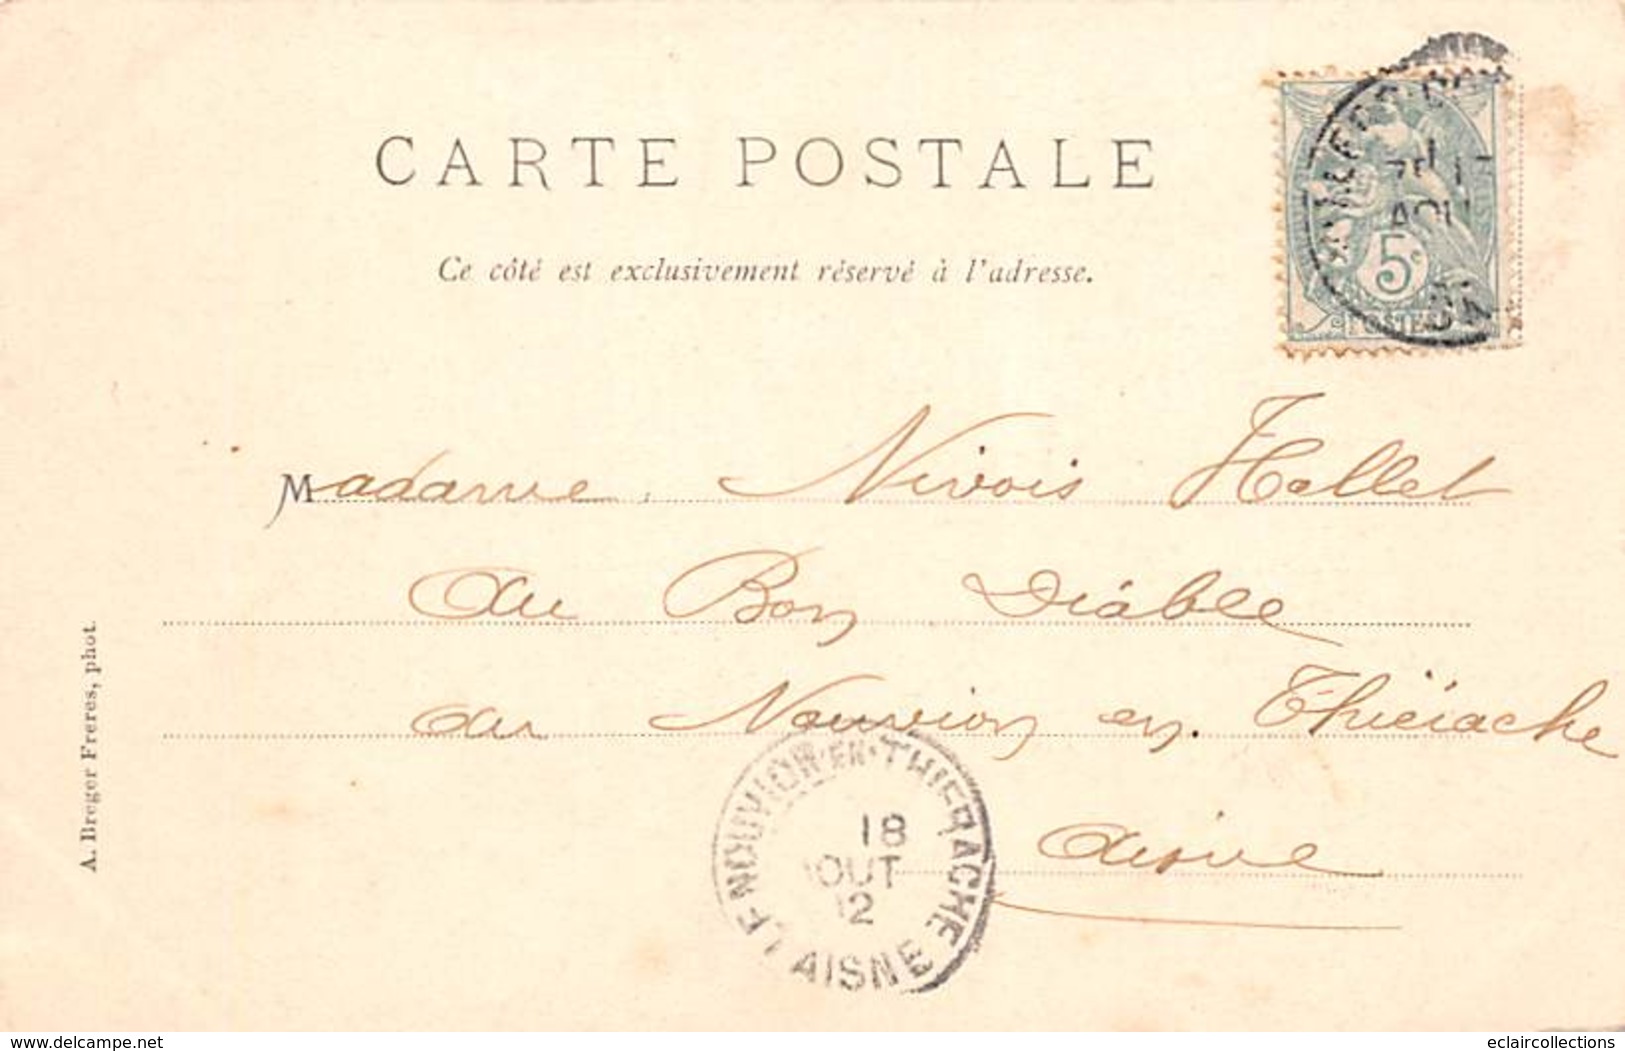 CARTE POSTALE
Ce côté est exclusivement réservé à l'adresse.
5c
POSTES
Madame Nivois Hallet
Au Bon Diable
au Nouvion en Thiérache
Aisne
LE NOUVION-EN-THIERACHE
18
OUT
12
AISNE
A. Breger Freres, phot.
www.delcampe.net
eclaircollections